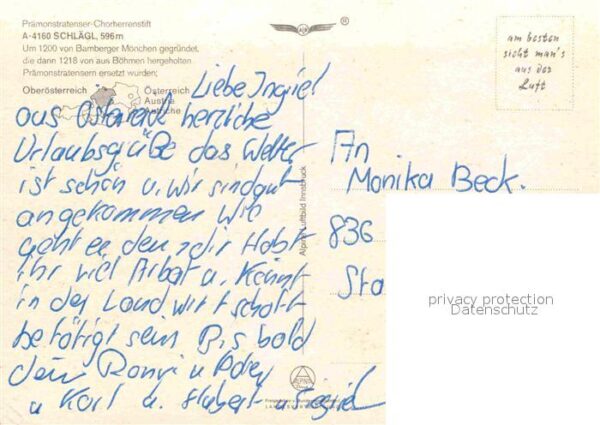 Prämonstratenser-Chorherrenstift
A-4160 SCHLÄGL, 596 m
Um 1200 von Bamberger Mönchen gegründet,
die dann 1218 von aus Böhmen hergeholten
Prämonstratensern ersetzt wurden;
Oberösterreich
Österreich
Austria
Autriche
am besten
sieht man's
aus der
Luft
Liebe Ingrid
aus Österreich herzliche
Urlaubsgrüße das Wetter
ist schön u. wir sind gut
angekommen Wie
geht es den dir Habt
ihr viel Arbat u. Kannst
in der Landwirtschaft
betätigt sein Bis bald
dein Romi u
u Karl u. Hubert u
An
Monika Beck.
836
Sta
Alpine Luftbild Innsbruck
privacy protection
Datenschutz
ALPINE